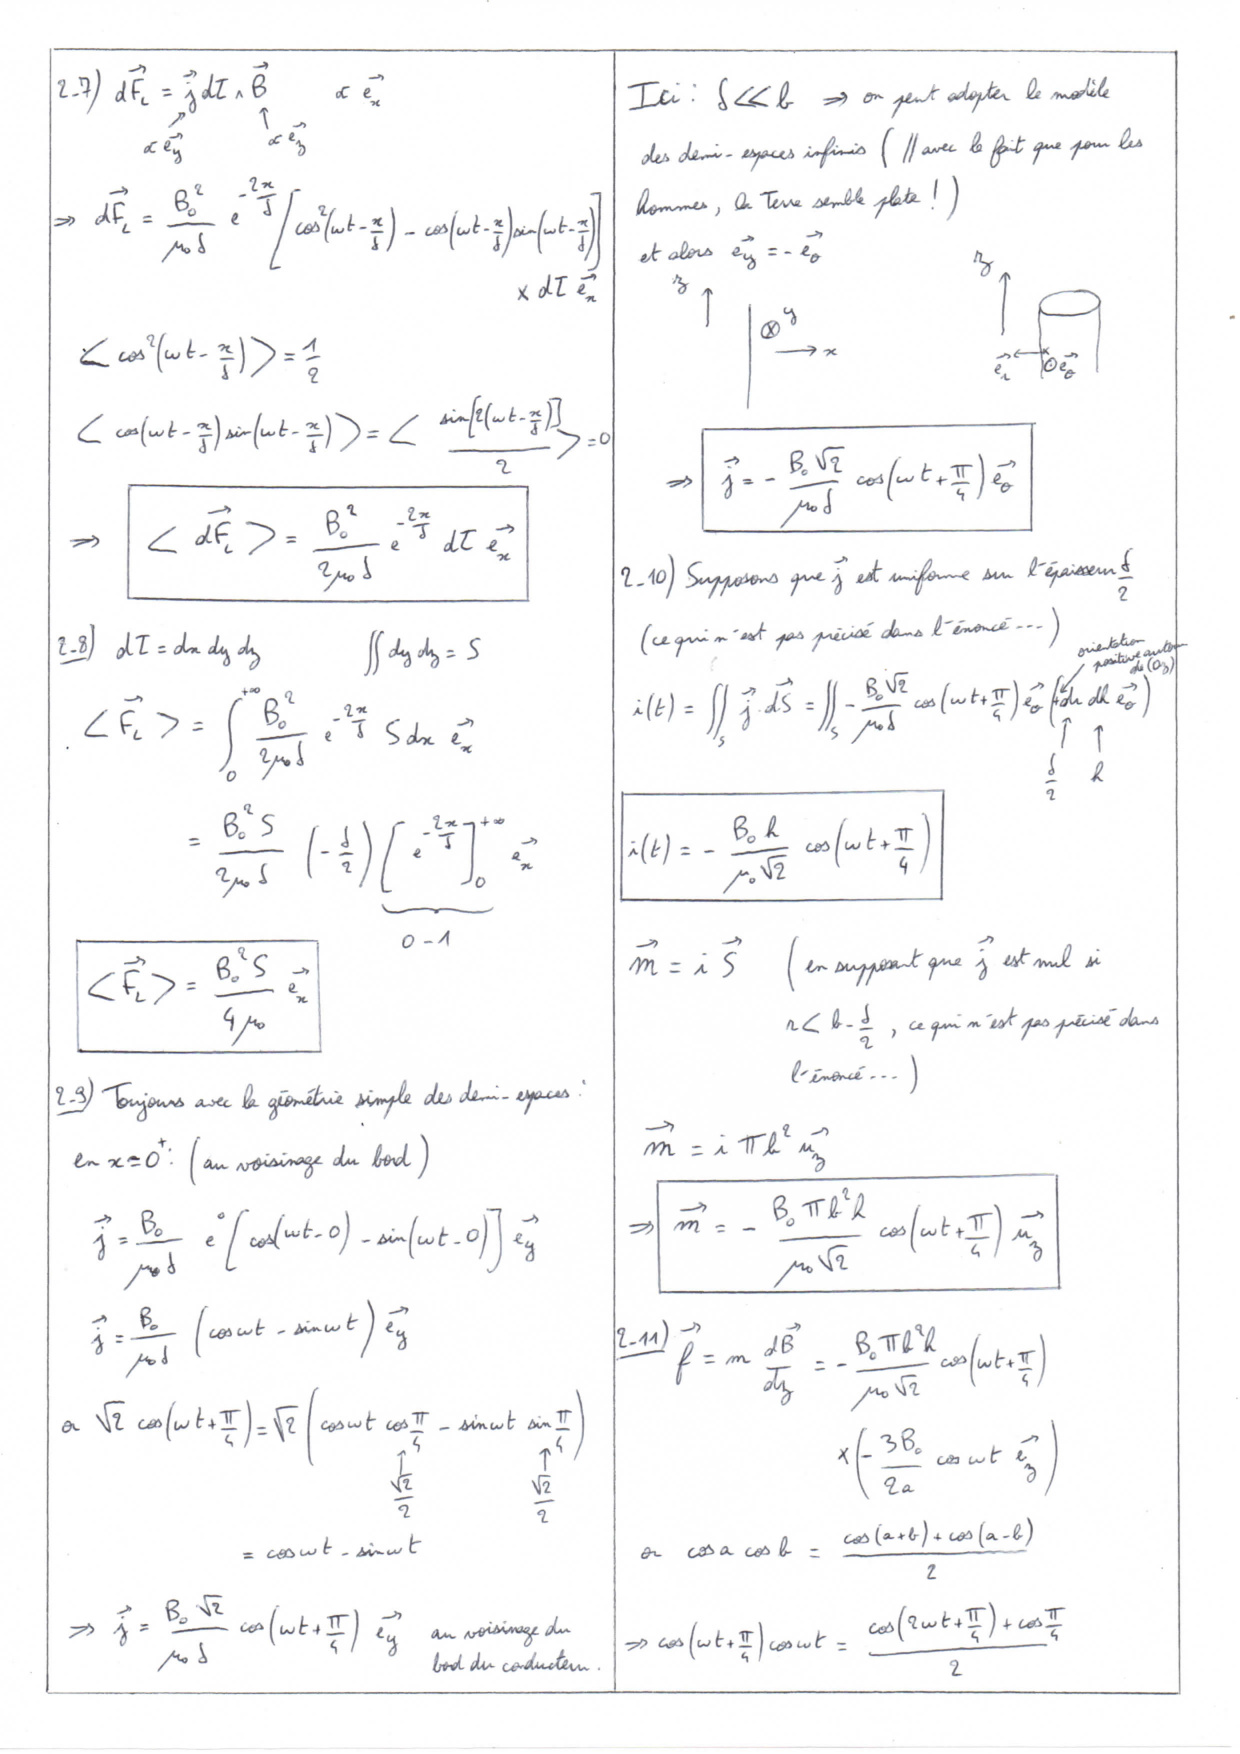 2-7) dF⃗_L = j⃗ dτ ∧ B⃗ ∝ e⃗_x
∝ e⃗_y ∝ e⃗_z
⇒ dF⃗_L = B₀²/(μ₀δ) e^(-2x/δ) [cos²(ωt - x/δ) - cos(ωt - x/δ) sin(ωt - x/δ)]
× dτ e⃗_x
< cos²(ωt - x/δ) > = 1/2
< cos(ωt - x/δ) sin(ωt - x/δ) > = < sin[2(ωt - x/δ)]/2 > = 0
⇒ < dF⃗_L > = B₀²/(2μ₀δ) e^(-2x/δ) dτ e⃗_x
2-8) dτ = dx dy dz ∬ dy dz = S
< F⃗_L > = ∫₀^(+∞) B₀²/(2μ₀δ) e^(-2x/δ) S dx e⃗_x
= B₀²S/(2μ₀δ) (-δ/2) [e^(-2x/δ)]₀^(+∞) e⃗_x
0 - 1
< F⃗_L > = B₀²S/(4μ₀) e⃗_x
2-9) Toujours avec la géométrie simple des demi-espaces :
en x = 0⁺ : (au voisinage du bord)
j⃗ = B₀/(μ₀δ) e⁰ [cos(ωt - 0) - sin(ωt - 0)] e⃗_y
j⃗ = B₀/(μ₀δ) (cos ωt - sin ωt) e⃗_y
or √2 cos(ωt + π/4) = √2 (cos ωt cos π/4 - sin ωt sin π/4)
√2/2 √2/2
= cos ωt - sin ωt
⇒ j⃗ = B₀√2/(μ₀δ) cos(ωt + π/4) e⃗_y au voisinage du
bord du conducteur.
Ici : δ ≪ b ⇒ on peut adopter le modèle
des demi-espaces infinis ( // avec le fait que pour les
hommes, la Terre semble plate ! )
et alors e⃗_y = - e⃗_θ
z y x
z e⃗_r e⃗_θ
⇒ j⃗ = - B₀√2/(μ₀δ) cos(ωt + π/4) e⃗_θ
2-10) Supposons que j⃗ est uniforme sur l'épaisseur δ/2
(ce qui n'est pas précisé dans l'énoncé ...)
orientation
positive autour
de (Oz)
i(t) = ∬_S j⃗ . dS⃗ = ∬_S - B₀√2/(μ₀δ) cos(ωt + π/4) e⃗_θ (+dr dh e⃗_θ)
δ/2 h
i(t) = - B₀h/(μ₀√2) cos(ωt + π/4)
m⃗ = i S⃗ (en supposant que j⃗ est nul si
r < b - δ/2, ce qui n'est pas précisé dans
l'énoncé ...)
m⃗ = i π b² u⃗_z
⇒ m⃗ = - B₀πb²h/(μ₀√2) cos(ωt + π/4) u⃗_z
2-11) f⃗ = m dB⃗/dz = - B₀πb²h/(μ₀√2) cos(ωt + π/4)
× (- 3B₀/(2a) cos ωt e⃗_z)
or cos a cos b = (cos(a+b) + cos(a-b))/2
⇒ cos(ωt + π/4) cos ωt = (cos(2ωt + π/4) + cos π/4)/2